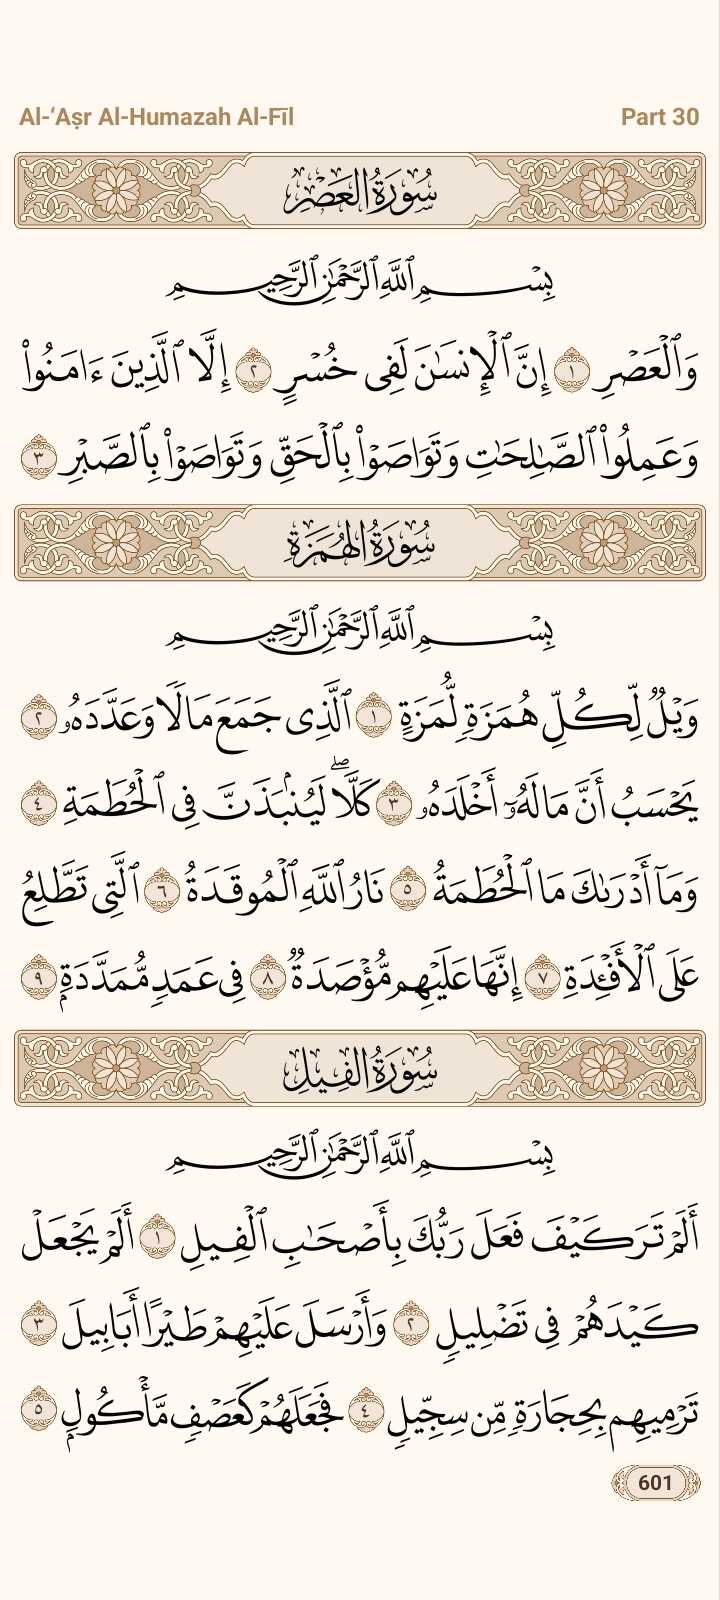 Al-ʻAṣr Al-Humazah Al-Fīl
Part 30
سُورَةُ العَصْرِ
بِسْمِ ٱللَّهِ ٱلرَّحْمَٰنِ ٱلرَّحِيمِ
وَٱلْعَصْرِ ١ إِنَّ ٱلْإِنسَٰنَ لَفِى خُسْرٍ ٢ إِلَّا ٱلَّذِينَ ءَامَنُوا۟
وَعَمِلُوا۟ ٱلصَّٰلِحَٰتِ وَتَوَاصَوْا۟ بِٱلْحَقِّ وَتَوَاصَوْا۟ بِٱلصَّبْرِ ٣
سُورَةُ الهُمَزَةِ
بِسْمِ ٱللَّهِ ٱلرَّحْمَٰنِ ٱلرَّحِيمِ
وَيْلٌ لِّكُلِّ هُمَزَةٍ لُّمَزَةٍ ١ ٱلَّذِى جَمَعَ مَالًا وَعَدَّدَهُۥ ٢
يَحْسَبُ أَنَّ مَالَهُۥٓ أَخْلَدَهُۥ ٣ كَلَّا ۖ لَيُنۢبَذَنَّ فِى ٱلْحُطَمَةِ ٤
وَمَآ أَدْرَىٰكَ مَا ٱلْحُطَمَةُ ٥ نَارُ ٱللَّهِ ٱلْمُوقَدَةُ ٦ ٱلَّتِى تَطَّلِعُ
عَلَى ٱلْأَفْـِٔدَةِ ٧ إِنَّهَا عَلَيْهِم مُّؤْصَدَةٌ ٨ فِى عَمَدٍ مُّمَدَّدَةٍۭ ٩
سُورَةُ الفِيلِ
بِسْمِ ٱللَّهِ ٱلرَّحْمَٰنِ ٱلرَّحِيمِ
أَلَمْ تَرَ كَيْفَ فَعَلَ رَبُّكَ بِأَصْحَٰبِ ٱلْفِيلِ ١ أَلَمْ يَجْعَلْ
كَيْدَهُمْ فِى تَضْلِيلٍ ٢ وَأَرْسَلَ عَلَيْهِمْ طَيْرًا أَبَابِيلَ ٣
تَرْمِيهِم بِحِجَارَةٍ مِّن سِجِّيلٍ ٤ فَجَعَلَهُمْ كَعَصْفٍ مَّأْكُولٍۭ ٥
601